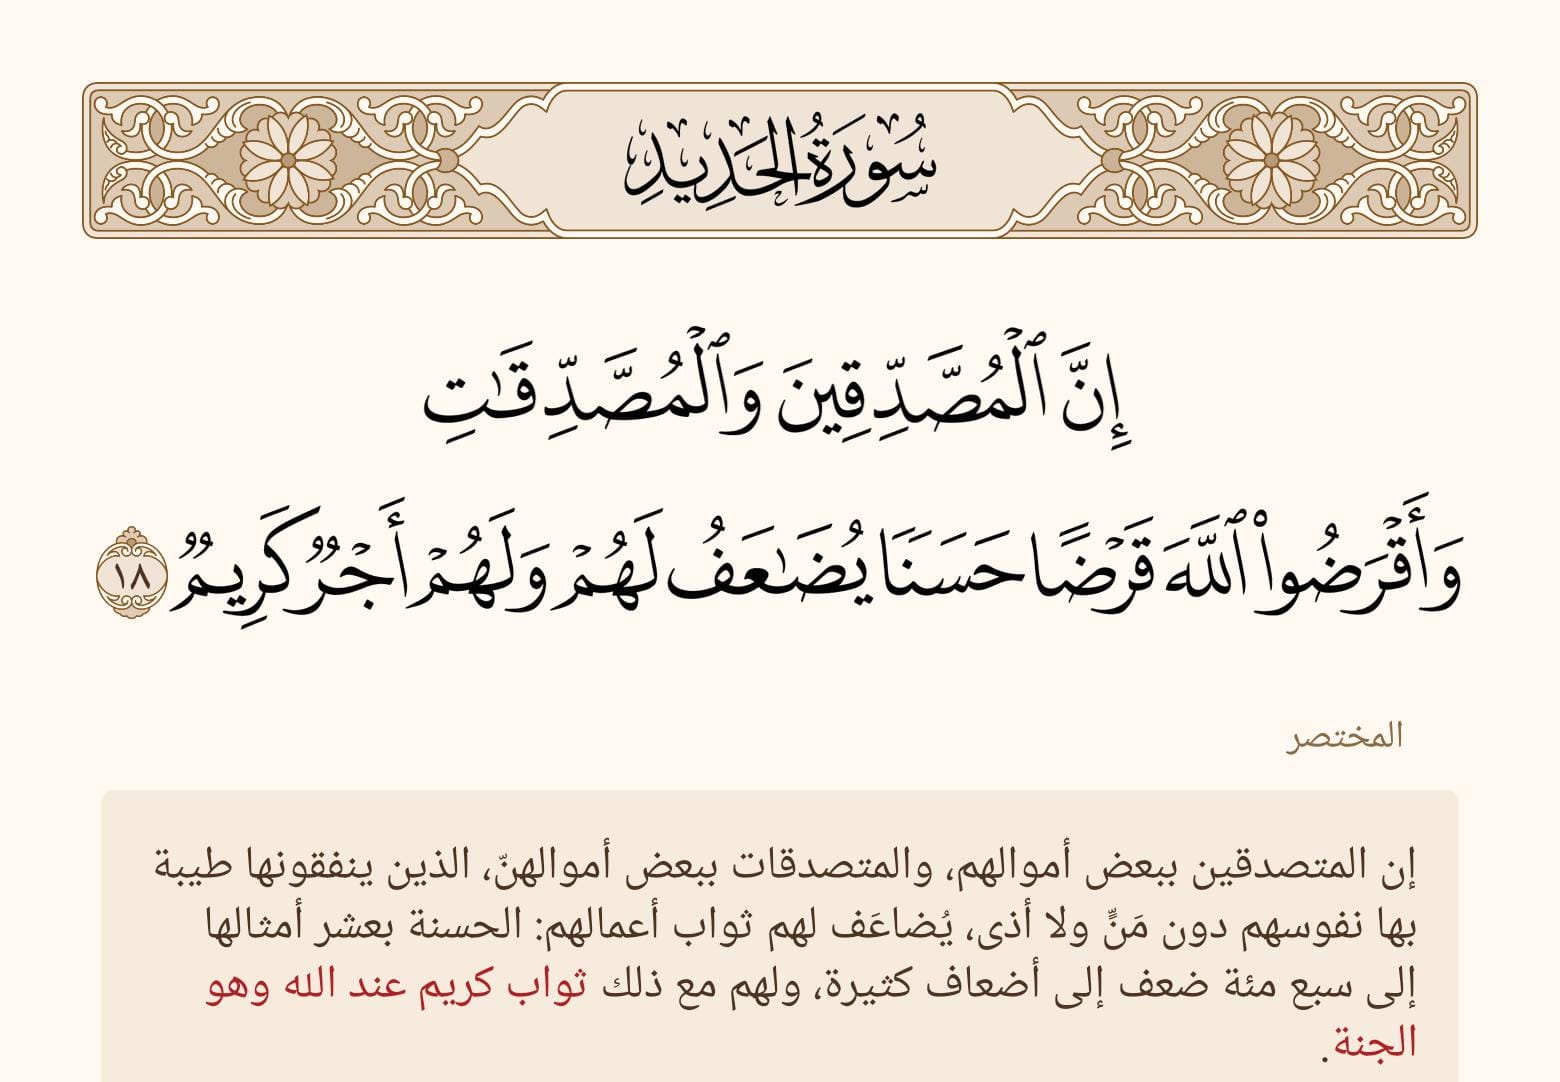 سُورَةُ الحَدِيدِ
إِنَّ ٱلۡمُصَّدِّقِينَ وَٱلۡمُصَّدِّقَٰتِ
وَأَقۡرَضُواْ ٱللَّهَ قَرۡضًا حَسَنٗا يُضَٰعَفُ لَهُمۡ وَلَهُمۡ أَجۡرٞ كَرِيمٞ ١٨
المختصر
إن المتصدقين ببعض أموالهم، والمتصدقات ببعض أموالهنّ، الذين ينفقونها طيبة
بها نفوسهم دون مَنٍّ ولا أذى، يُضاعَف لهم ثواب أعمالهم: الحسنة بعشر أمثالها
إلى سبع مئة ضعف إلى أضعاف كثيرة، ولهم مع ذلك ثواب كريم عند الله وهو
الجنة.